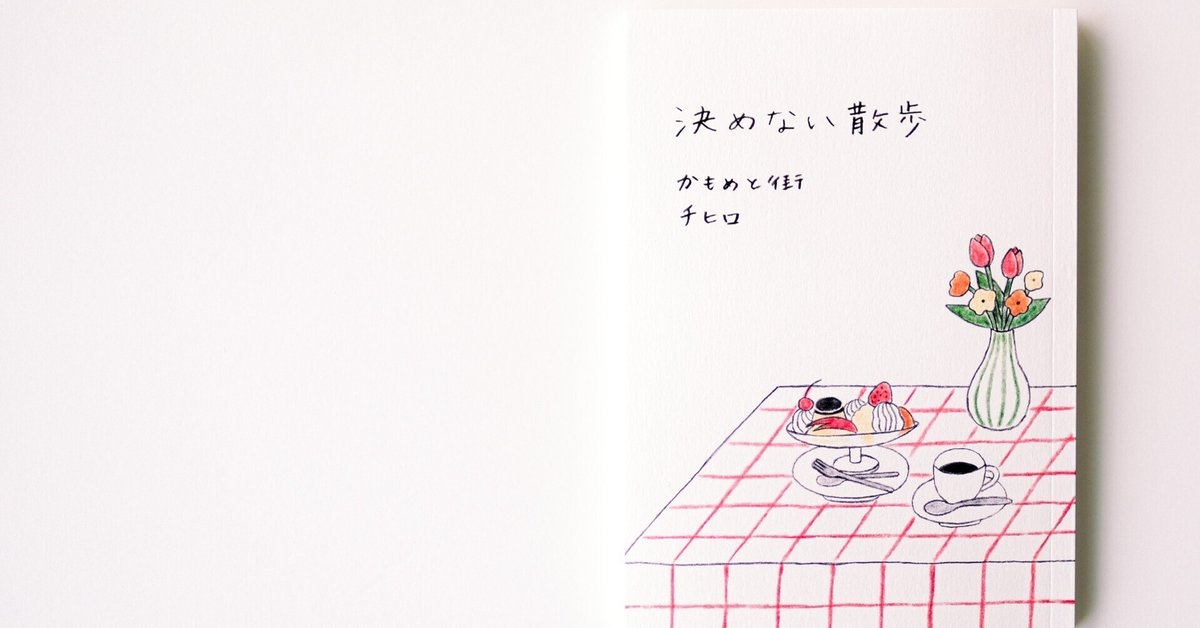 決めない散歩
かもめと街
チヒロ